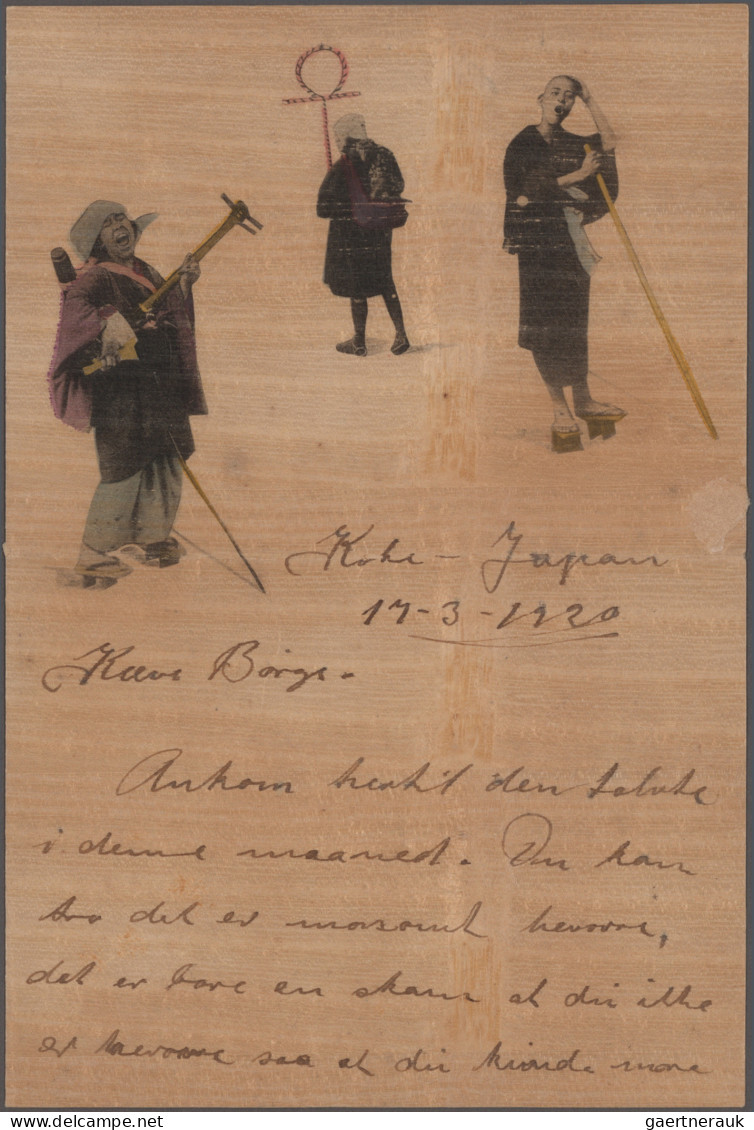 Kobe - Japan
17-3-1920
Kære Börge.
Ankom hertil den tolvte
i denne maaned. Du kan
tro det er morsomt herovre,
det er bare en skam at du ikke
er herovre saa at du kunde more
DELCAMPE.NET
gaertnerauk